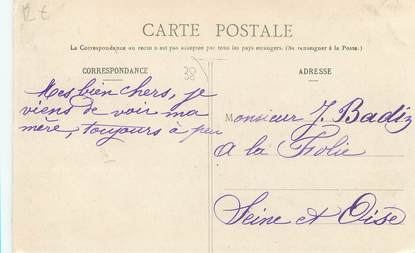 12 €
CARTE POSTALE
La Correspondance au recto n'est pas acceptée par tous les pays étrangers. (Se renseigner à la Poste.)
CORRESPONDANCE
38
Mes bien chers, je
viens de voir ma
mère, toujours à peu
ADRESSE
Monsieur J. Badiz
A la Folie
Seine et Oise